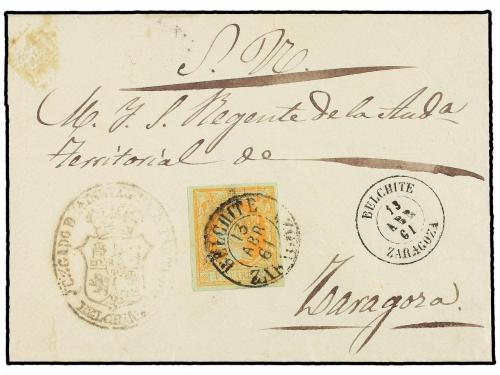 S. N.
M. Y. S. Regente de la Auda
Territorial de
BELCHITE
13
ABR
61
ZARAGOZA
BELCHITE
13
ABR
61
ZARAGOZA
JUZGADO DE
BELCHITE
Zaragoza.